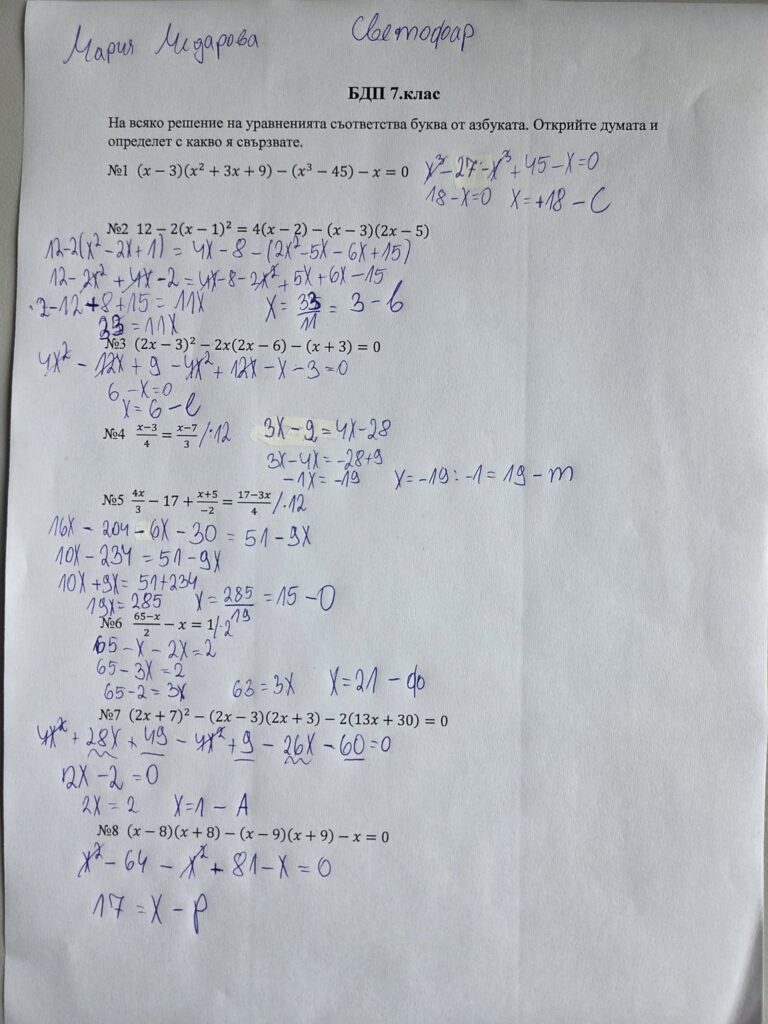 Мария Медарова Светофар
БДП 7.клас
На всяко решение на уравненията съответства буква от азбуката. Открийте думата и
определет с какво я свързвате.
№1 (x − 3)(x² + 3x + 9) − (x³ − 45) − x = 0 x³ − 27 − x³ + 45 − x = 0
18 − x = 0 x = +18 − С
№2 12 − 2(x − 1)² = 4(x − 2) − (x − 3)(2x − 5)
12 − 2(x² − 2x + 1) = 4x − 8 − (2x² − 5x − 6x + 15)
12 − 2x² + 4x − 2 = 4x − 8 − 2x² + 5x + 6x − 15
2 − 12 + 8 + 15 = 11x x = 33/11 = 3 − в
33 = 11x
№3 (2x − 3)² − 2x(2x − 6) − (x + 3) = 0
4x² − 12x + 9 − 4x² + 12x − x − 3 = 0
6 − x = 0
x = 6 − е
№4 x−3/4 = x−7/3 /·12 3x − 9 = 4x − 28
3x − 4x = −28 + 9
−1x = −19 x = −19 : −1 = 19 − т
№5 4x/3 − 17 + x+5/−2 = 17−3x/4 /·12
16x − 204 − 6x − 30 = 51 − 9x
10x − 234 = 51 − 9x
10x + 9x = 51 + 234
19x = 285 x = 285/19 = 15 − О
№6 65−x/2 − x = 1 /·2
65 − x − 2x = 2
65 − 3x = 2
65 − 2 = 3x 63 = 3x x = 21 − ф
№7 (2x + 7)² − (2x − 3)(2x + 3) − 2(13x + 30) = 0
4x² + 28x + 49 − 4x² + 9 − 26x − 60 = 0
2x − 2 = 0
2x = 2 x = 1 − А
№8 (x − 8)(x + 8) − (x − 9)(x + 9) − x = 0
x² − 64 − x² + 81 − x = 0
17 = x − р